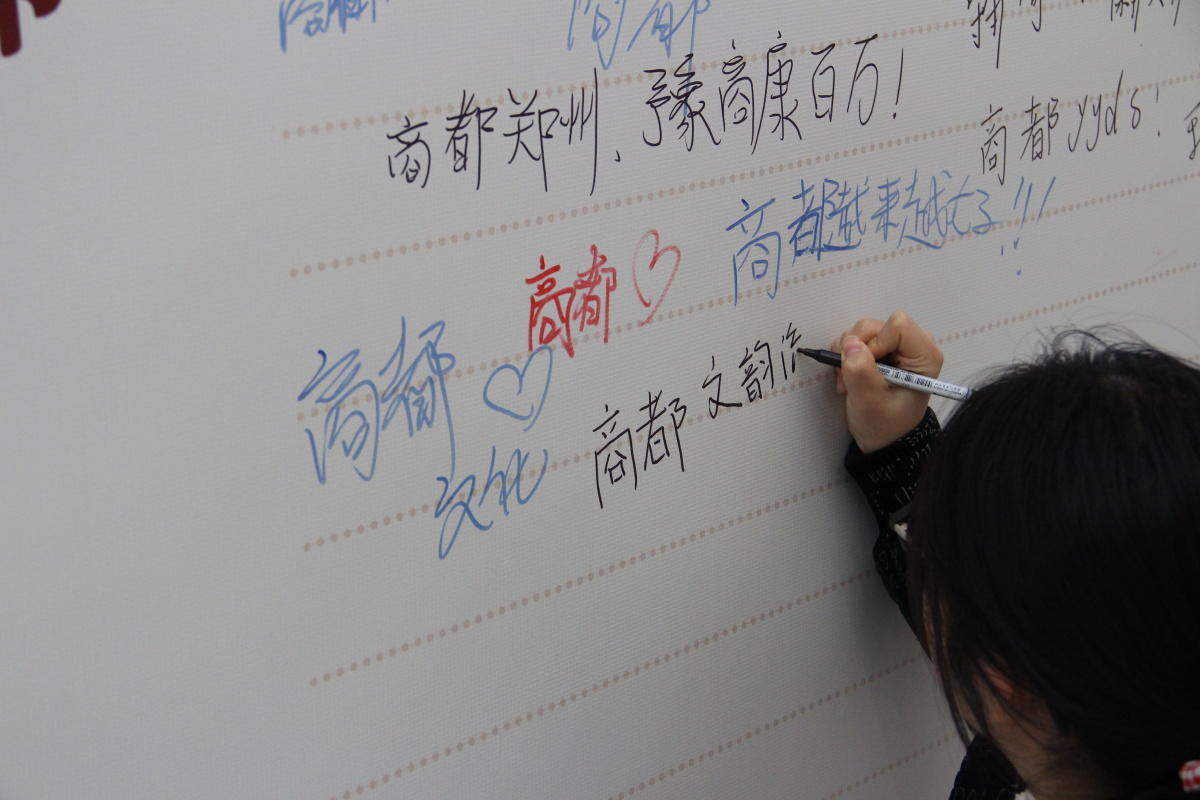 商都
商都郑州、豫商康百万！
商都yyds！
商都越来越好!!!
商都♡
商都♡
文化
商都 文韵流